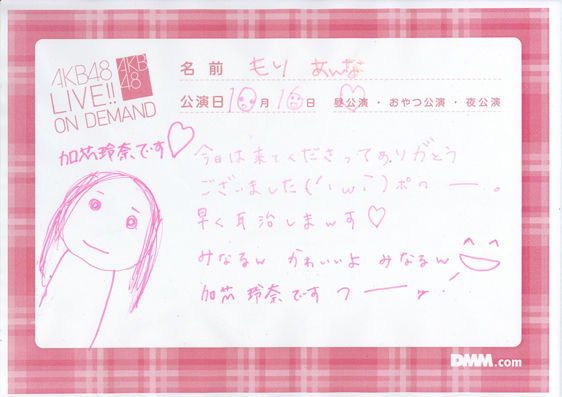 AKB48
LIVE!!
ON DEMAND
AKB
48
名前 もり あんな
公演日 10月 16日 昼公演・おやつ公演・夜公演
加芸玲奈です♡
今日は来てくださってありがとう
ございました
早く耳治しまぁす♡
みなるん かわいいよ みなるん
加芸 玲奈です
DMM.com